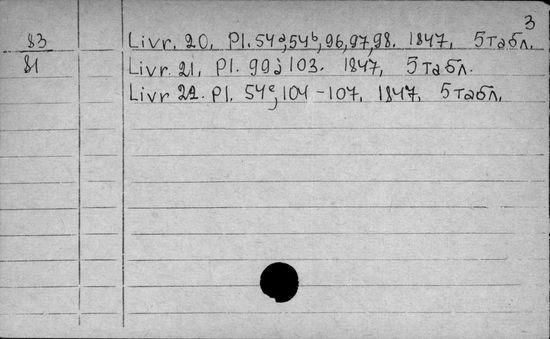 3
83 Livr. 20. Pl. 54a, 54b, 96, 97, 98. 1847. 5 табл.
81 Livr. 21. Pl. 99 à 103. 1847. 5 табл.
Livr 22. Pl. 54c, 104-107. 1847. 5 табл.